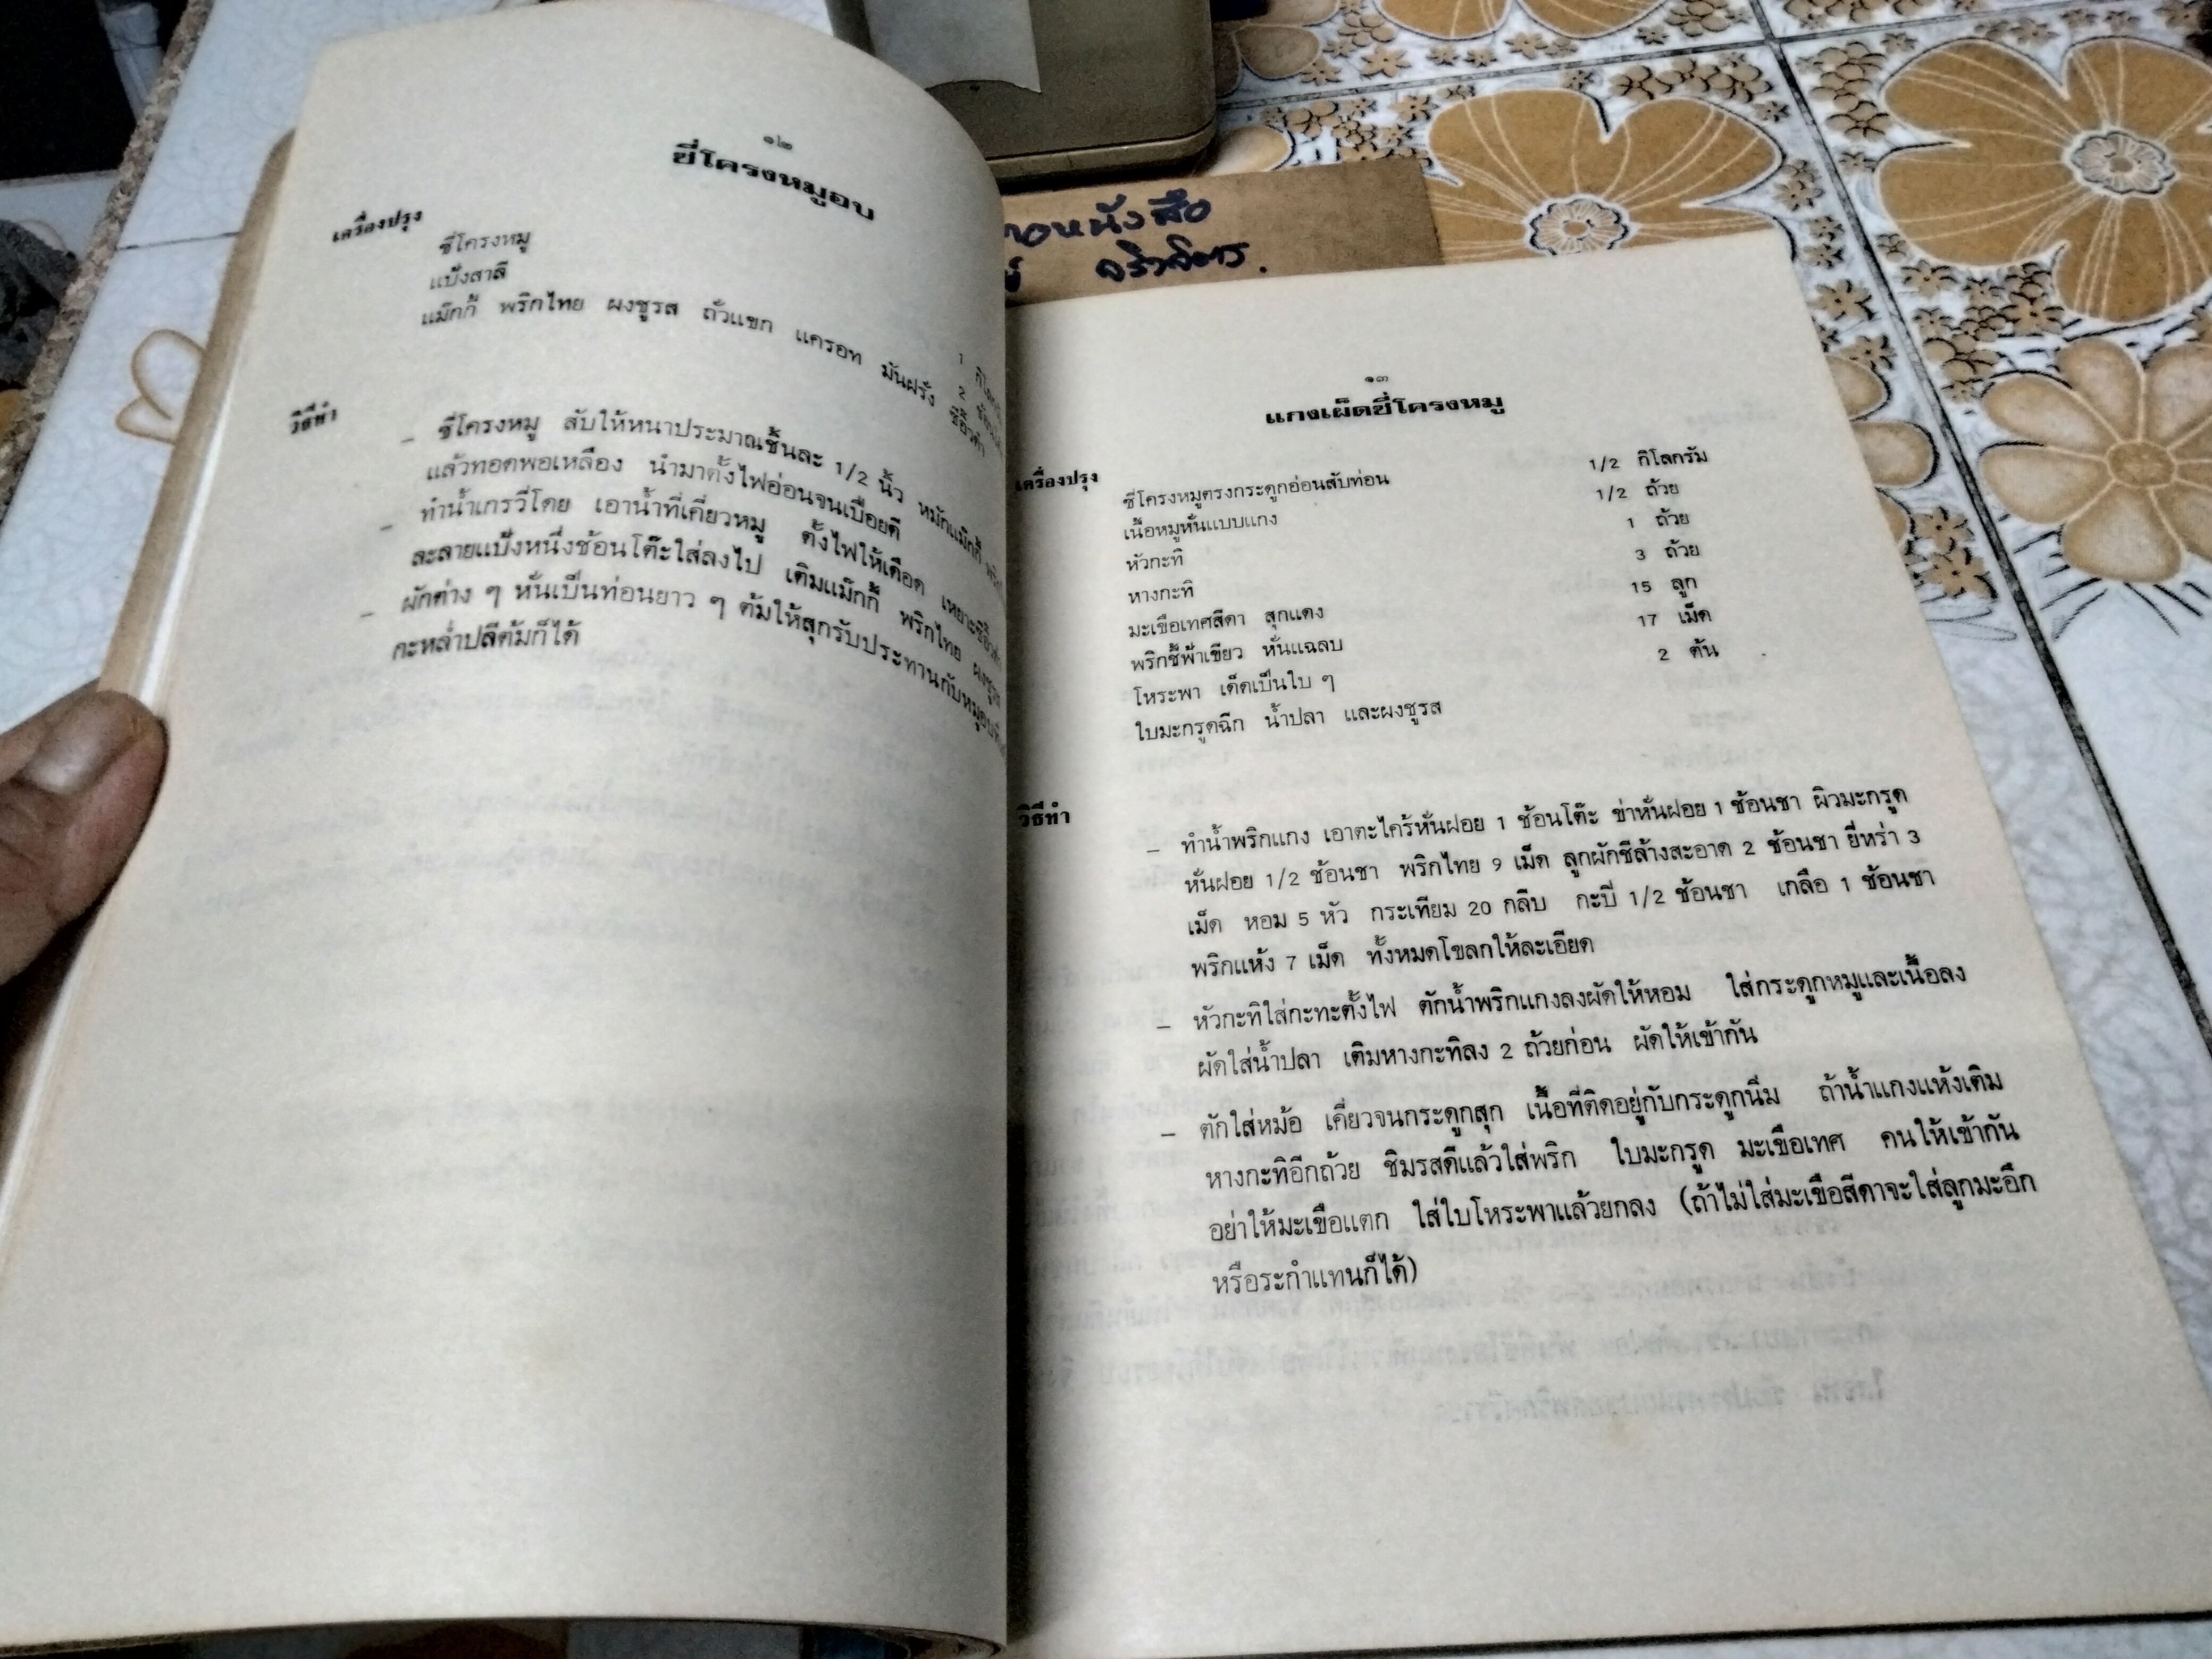 ๑๒
ซี่โครงหมูอบ
เครื่องปรุง
ซี่โครงหมู 1
แป้งสาลี 2
แม๊กกี้ พริกไทย ผงชูรส ถั่วแขก แครอท มันฝรั่ง ซีอิ๊วดำ
วิธีทำ
– ซี่โครงหมู สับให้หนาประมาณชิ้นละ 1/2 นิ้ว หมักแม๊กกี้
แล้วทอดพอเหลือง นำมาตั้งไฟอ่อนจนเปื่อยดี
– ทำน้ำเกรวี่โดย เอาน้ำที่เคี่ยวหมู ตั้งไฟให้เดือด เหยาะซีอิ๊วดำ
ละลายแป้งหนึ่งช้อนโต๊ะใส่ลงไป เติมแม๊กกี้ พริกไทย ผงชูรส
– ผักต่าง ๆ หั่นเป็นท่อนยาว ๆ ต้มให้สุกรับประทานกับหมูอบ
กะหล่ำปลีต้มก็ได้
หนังสือ
๑๓
แกงเผ็ดซี่โครงหมู
เครื่องปรุง
ซี่โครงหมูตรงกระดูกอ่อนสับท่อน 1/2 กิโลกรัม
เนื้อหมูหั่นแบบแกง 1/2 ถ้วย
หัวกะทิ 1 ถ้วย
หางกะทิ 3 ถ้วย
มะเขือเทศสีดา สุกแดง 15 ลูก
พริกชี้ฟ้าเขียว หั่นแฉลบ 17 เม็ด
โหระพา เด็ดเป็นใบ ๆ 2 ต้น
ใบมะกรูดฉีก น้ำปลา และผงชูรส
วิธีทำ
– ทำน้ำพริกแกง เอาตะไคร้หั่นฝอย 1 ช้อนโต๊ะ ข่าหั่นฝอย 1 ช้อนชา ผิวมะกรูด
หั่นฝอย 1/2 ช้อนชา พริกไทย 9 เม็ด ลูกผักชีล้างสะอาด 2 ช้อนชา ยี่หร่า 3
เม็ด หอม 5 หัว กระเทียม 20 กลีบ กะปี 1/2 ช้อนชา เกลือ 1 ช้อนชา
พริกแห้ง 7 เม็ด ทั้งหมดโขลกให้ละเอียด
– หัวกะทิใส่กะทะตั้งไฟ ตักน้ำพริกแกงลงผัดให้หอม ใส่กระดูกหมูและเนื้อลง
ผัดใส่น้ำปลา เติมหางกะทิลง 2 ถ้วยก่อน ผัดให้เข้ากัน
– ตักใส่หม้อ เคี่ยวจนกระดูกสุก เนื้อที่ติดอยู่กับกระดูกนิ่ม ถ้าน้ำแกงแห้งเติม
หางกะทิอีกถ้วย ชิมรสดีแล้วใส่พริก ใบมะกรูด มะเขือเทศ คนให้เข้ากัน
อย่าให้มะเขือแตก ใส่ใบโหระพาแล้วยกลง (ถ้าไม่ใส่มะเขือสีดาจะใส่ลูกมะอึก
หรือระกำแทนก็ได้)